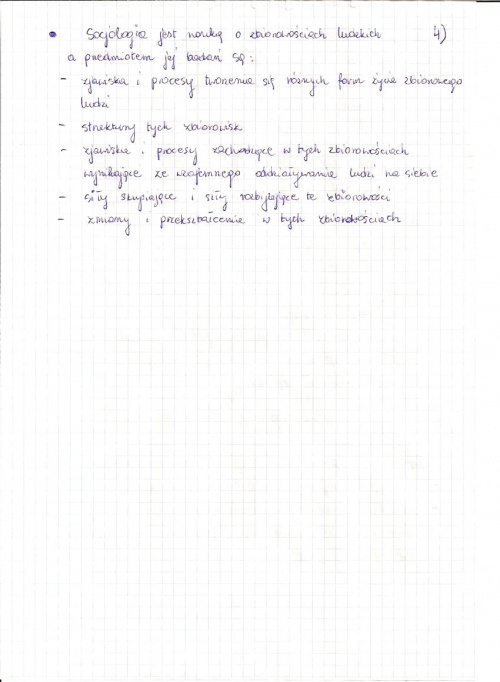 • Socjologia jest nauką o zbiorowościach ludzkich 4)
a przedmiotem jej badań są:
- zjawiska i procesy tworzenia się różnych form życia zbiorowego
ludzi
- struktury tych zbiorowisk
- zjawiska i procesy zachodzące w tych zbiorowościach
wynikające ze wzajemnego oddziaływania ludzi na siebie
- siły skupiające i siły rozbijające te zbiorowości
- zmiany i przekształcenia w tych zbiorowościach